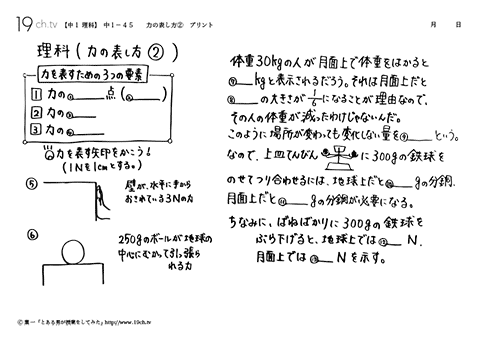 19ch.tv 【中1理科】 中1-45 力の表し方② プリント 月 日
理科(力の表し方②)
力を表すための3つの要素
1 力の①____点(②____)
2 力の③____
3 力の④____
力を表す矢印をかこう!
(1Nを1cmとする。)
⑤
壁が、水平に手から
おされている3Nの力
⑥
250gのボールが地球の
中心にむかって引っ張ら
れる力
体重30kgの人が月面上で体重をはかると
⑦____kgと表示されるだろう。それは月面上だと
⑧____の大きさが1/6になることが理由なので、
その人の体重が減ったわけじゃないんだ。
このように場所が変わっても変化しない量を⑨____という。
なので、上皿てんびん に300gの鉄球を
のせてつり合わせるには、地球上だと⑩____gの分銅、
月面上だと⑪____gの分銅が必要になる。
ちなみに、ばねばかりに300gの鉄球を
ぶら下げると、地球上では⑫____N、
月面上では⑬____Nを示す。
Ⓒ葉一「とある男が授業をしてみた」http://www.19ch.tv